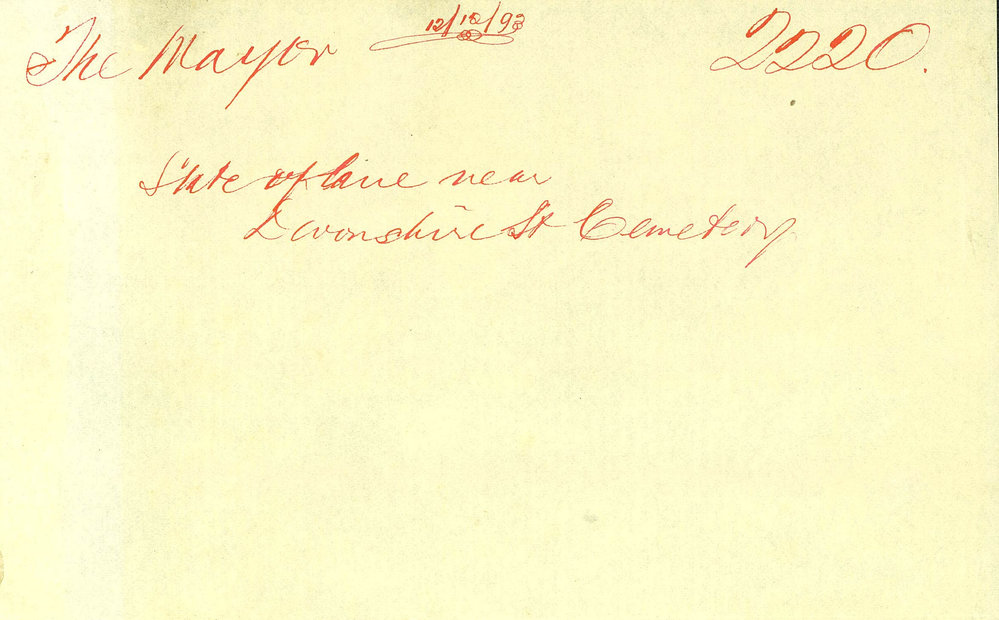 The Mayor 12/12/93 2220.
State of lane near
Devonshire St Cemetery